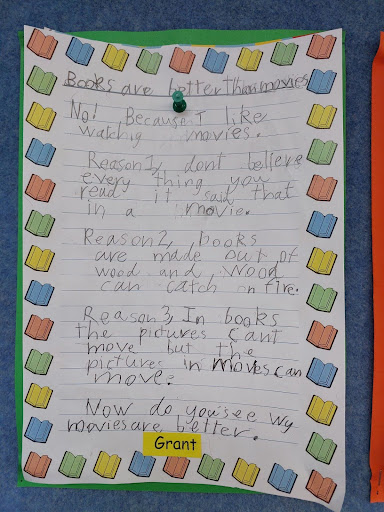 Books are better than movies
No! Because I like
watching movies.
Reason 1, dont believe
every thing you
read it said that
in a movie.
Reason 2, books
are made out of
wood and wood
can catch on fire.
Reason 3, In books
the pictures cant
move but the
pictures in movies can
move.
Now do you see wy
movies are better.
Grant